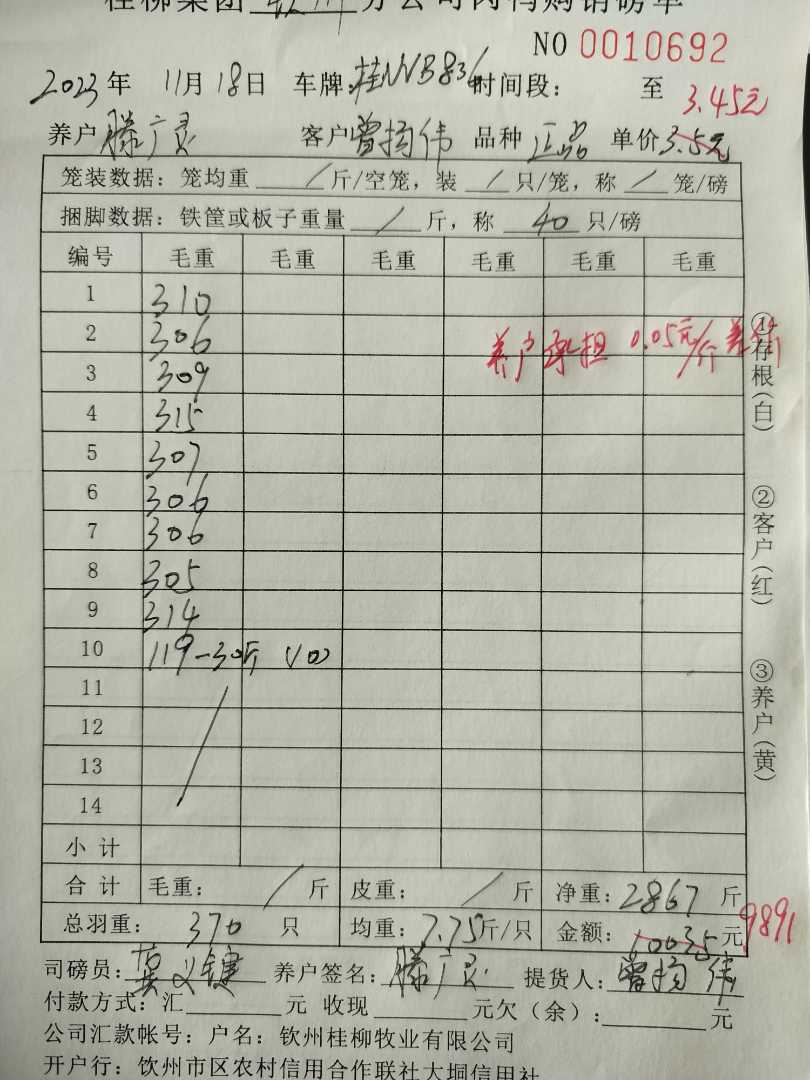 桂柳集团 钦州 分公司肉鸭购销磅单
NO 0010692
2023年 11月18日 车牌:桂NVB836 时间段: 至
3.45元
养户 滕广灵 客户 曾扬伟 品种 正品 单价 3.5元
笼装数据: 笼均重 / 斤/空笼, 装 / 只/笼, 称 / 笼/磅
捆脚数据: 铁筐或板子重量 / 斤, 称 40 只/磅
编号 毛重 毛重 毛重 毛重 毛重 毛重
1 310
2 306
养户承担 0.05元/斤差价
3 309
4 315
5 307
6 306
7 306
8 305
9 314
10 119-30斤
11
12
13
14
小计
合计 毛重: / 斤 皮重: / 斤 净重: 2867 斤
总羽重: 370 只 均重: 7.75斤/只 金额: 10035 元 9891
司磅员: 莫义键 养户签名: 滕广灵 提货人: 曾扬伟
付款方式: 汇 元 收现 元欠(余): 元
公司汇款帐号: 户名: 钦州桂柳牧业有限公司
开户行: 钦州市区农村信用合作联社大垌信用社
①存根(白) ②客户(红) ③养户(黄)